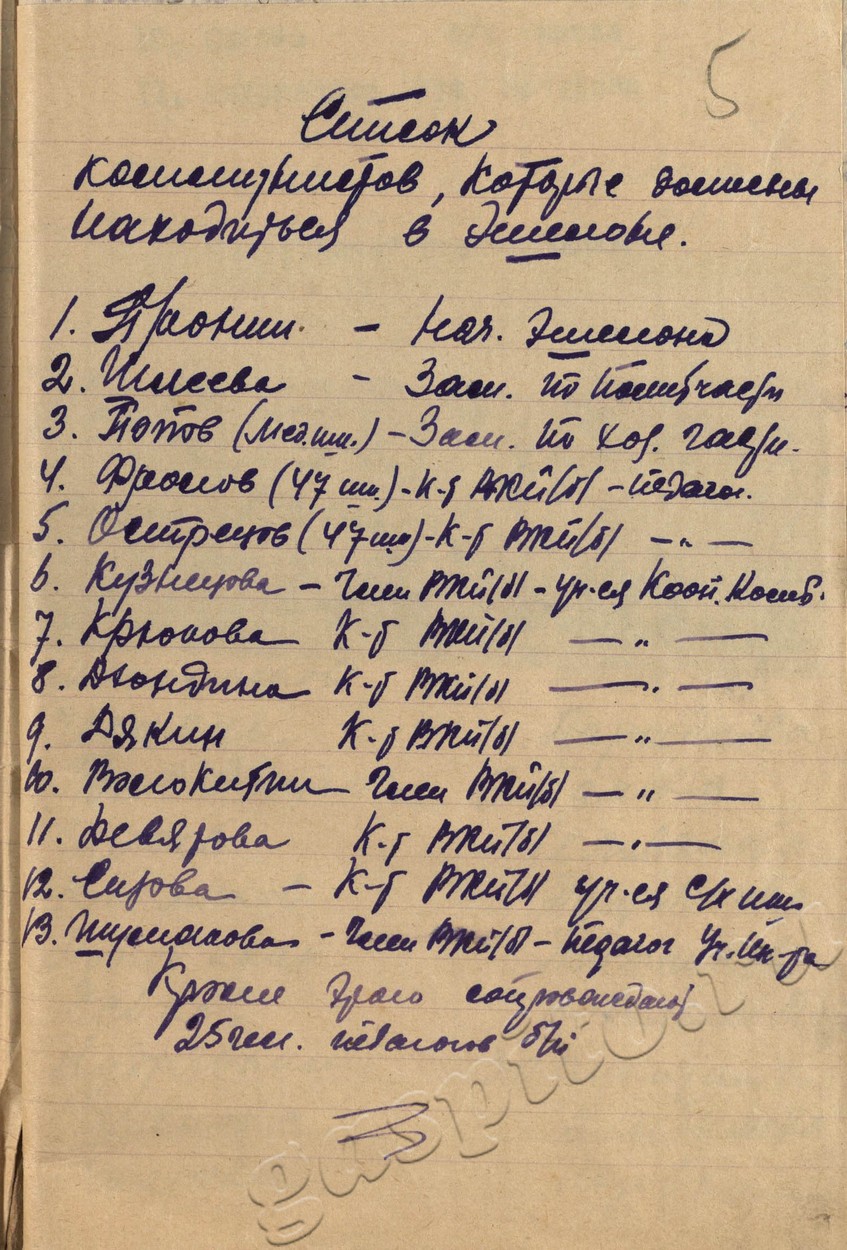 5
Список
коммунистов, которые должны
находиться в эшелоне.
1. Пронин - Нач. эшелона
2. Шлеева - Зам. по политчасти
3. Попов (Мед.шк.) - Зам. по хоз. части.
4. Фролов (47 шк.) - К-т ВКП(б) - педагог.
5. Острецов (47 шк) - К-т ВКП(б) - " -
6. Кузнецова - Член ВКП(б) - уч-ся Кооп.
7. Крюкова К-т ВКП(б) - " -
8. К-т ВКП(б) - " -
9. Дякин К-т ВКП(б) - " -
10. Волокитин Член ВКП(б) - " -
11. Девятова К-т ВКП(б) - " -
12. К-т ВКП(б) уч-ся с/х шк
13. - Член ВКП(б) - педагог Уч. Ин-та
Кроме этого сопровождают
25 чел. педагогов б/п
gaspito.ru